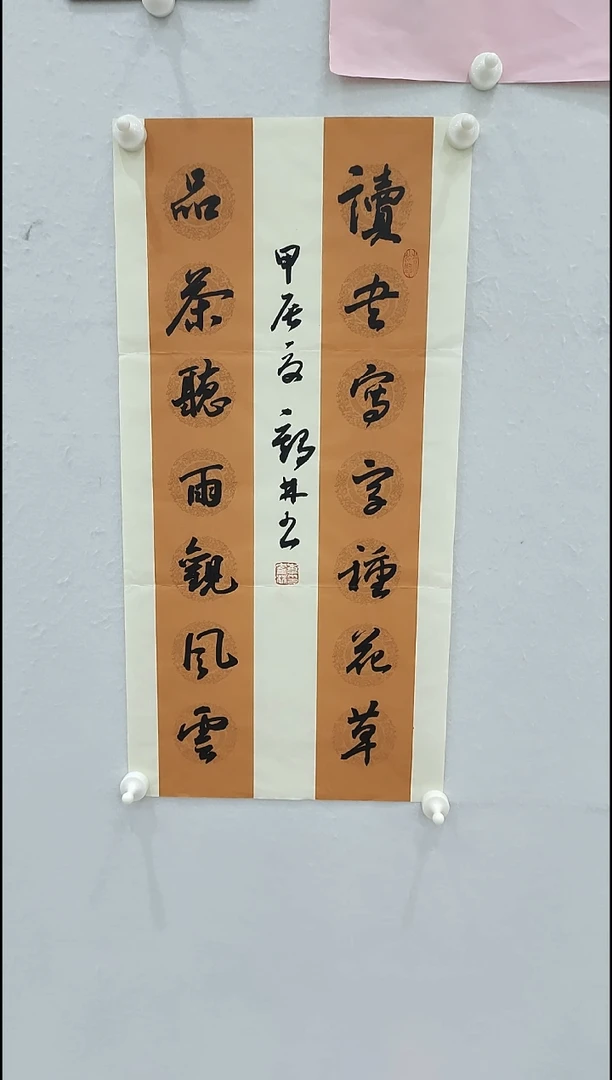 讀书寫字種花草
品茶聽雨觀風雲
甲辰夏